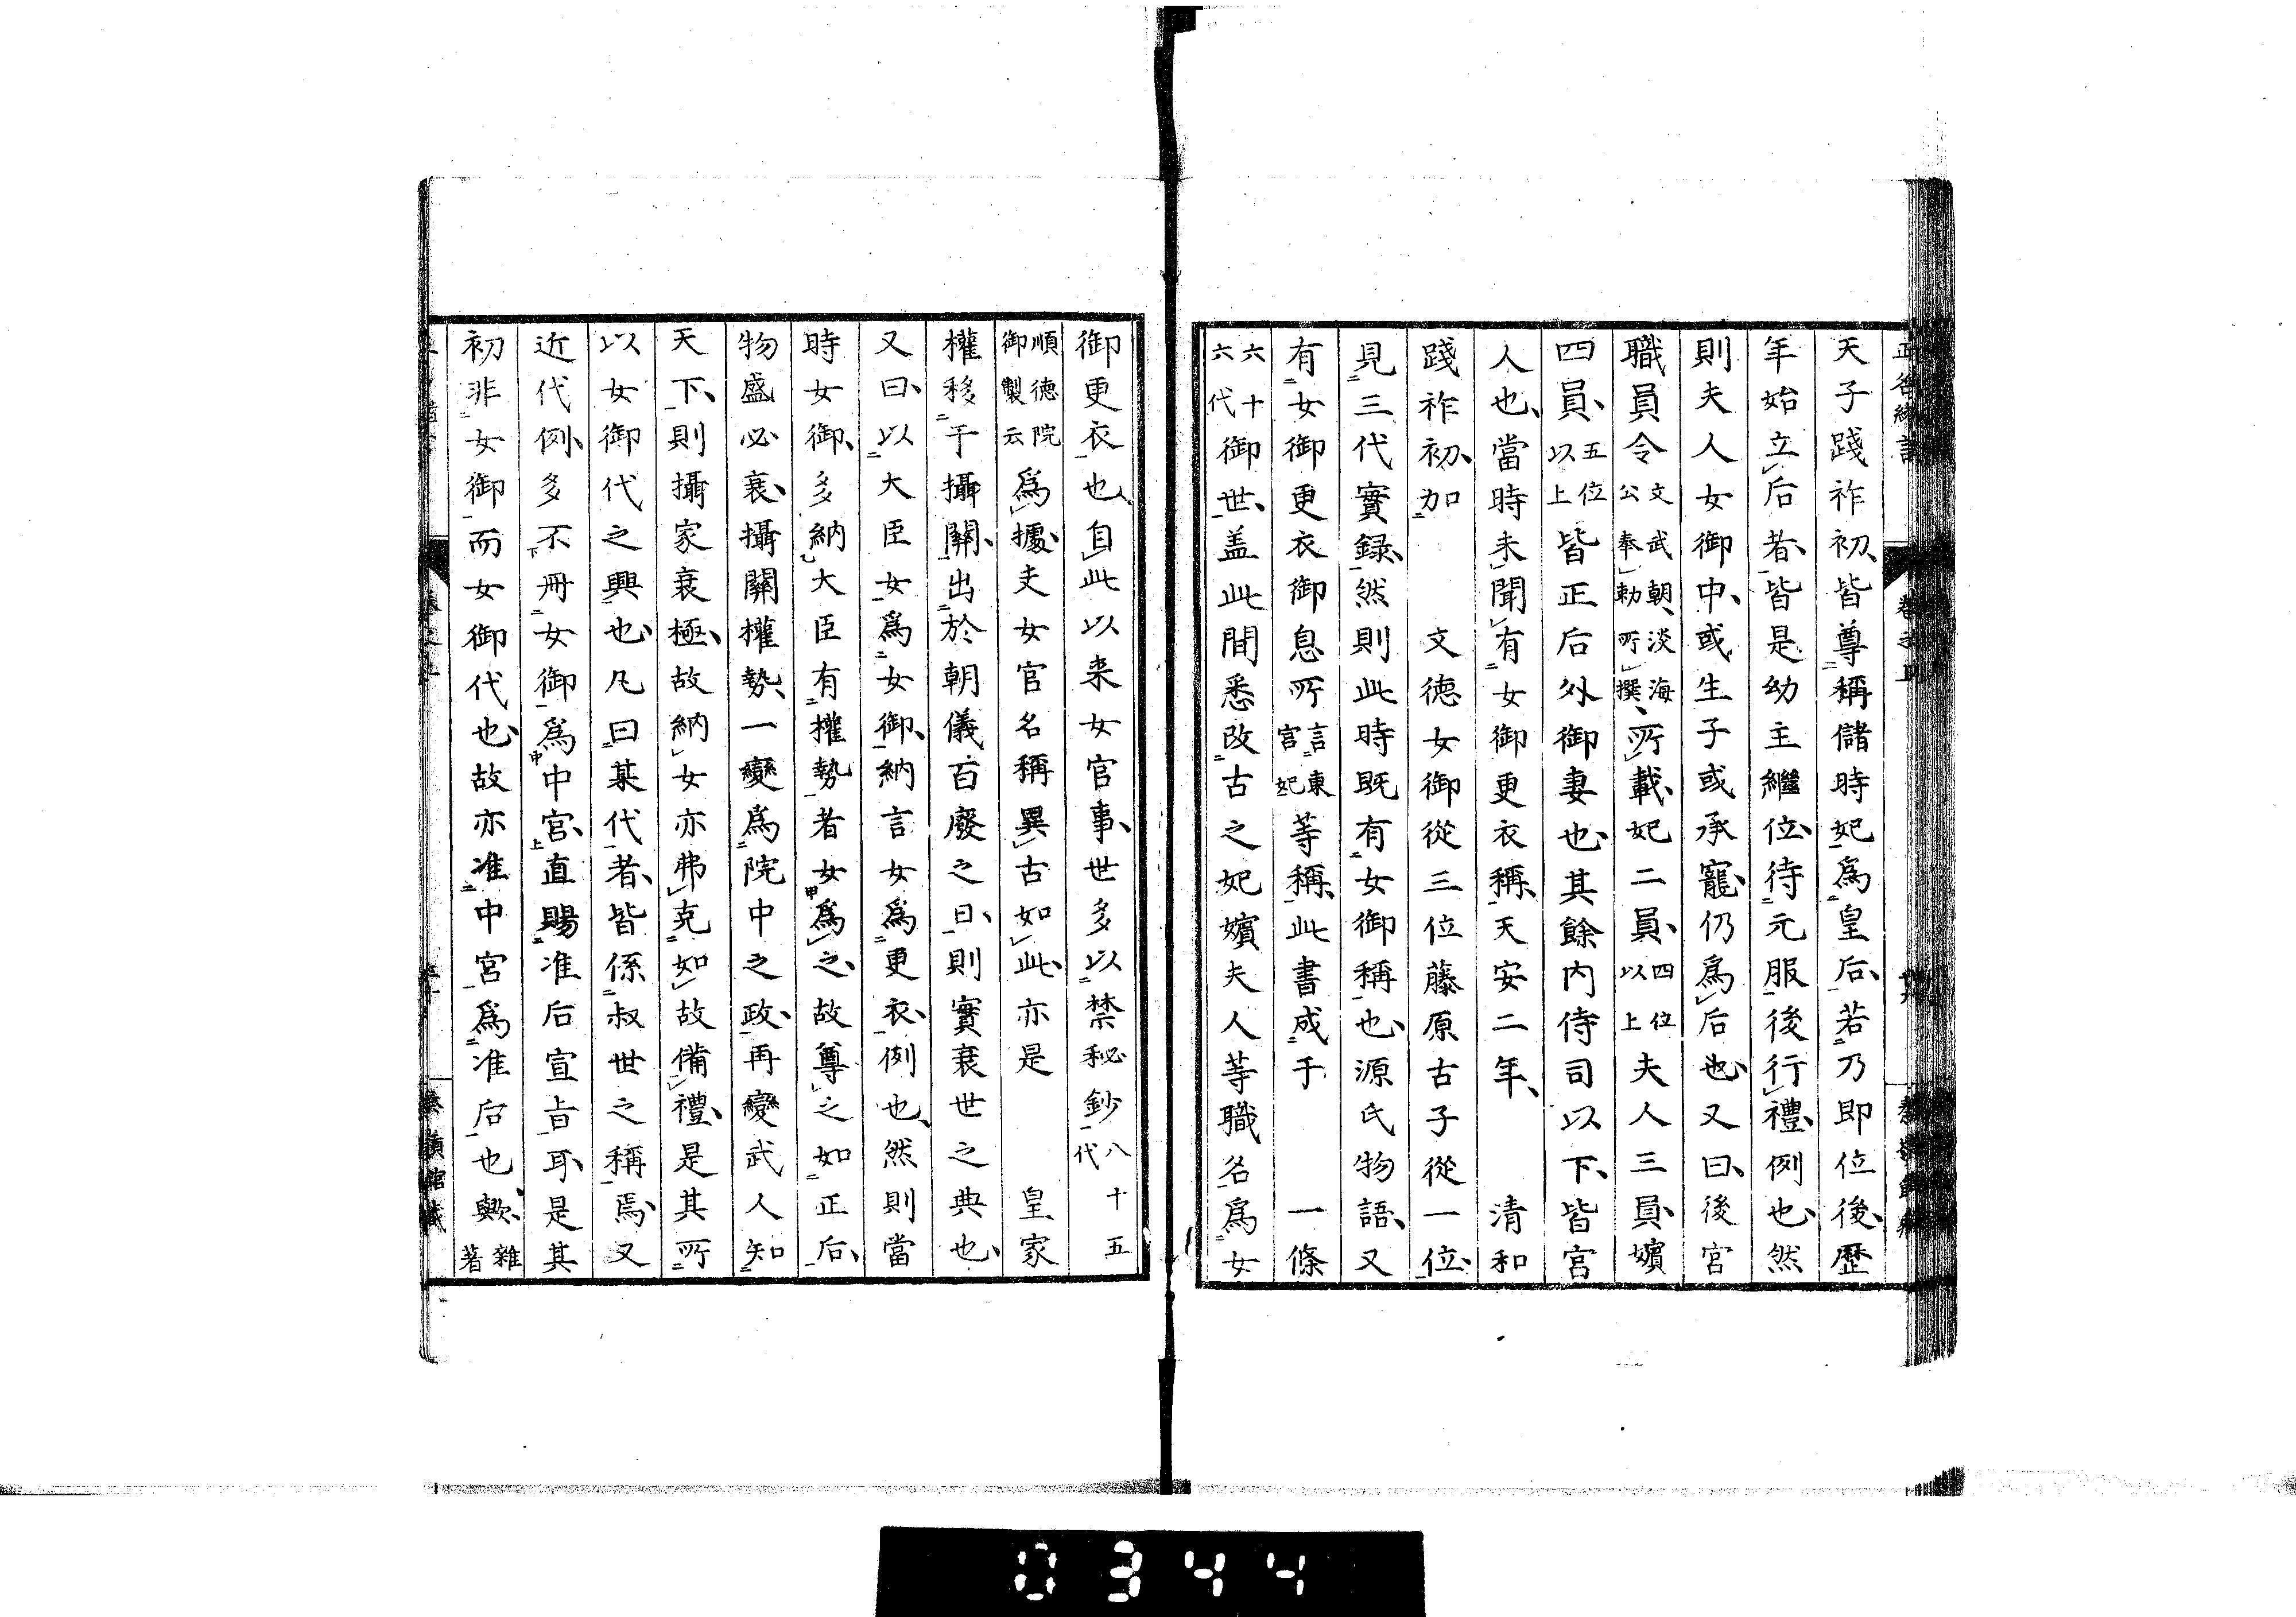 天子踐祚初、皆尊稱儲時妃爲皇后、若乃即位後、歷
年始立后者、皆是幼主繼位、待元服後行禮、例也、然
則夫人女御中、或生子或承寵、仍爲后也、又曰、後宮
職員令文武朝、淡海公奉勅所撰、所載、妃二員、四位以上夫人三員、嬪
四員、五位以上皆正后外御妻也、其餘内侍司以下、皆宮
人也、當時未聞有女御更衣稱、天安二年、 清和
踐祚初、加 文德女御從三位藤原古子從一位、
見三代實録、然則此時既有女御稱也、源氏物語、又
有女御更衣御息所言東宮妃等稱、此書成于 一條
六十六代御世、盖此間悉改古之妃嬪夫人等職名爲女
御更衣也、自此以来女官事、世多以禁秘鈔八十五代
順德院御製云爲據、支女官名稱異古如此、亦是 皇家
權移于攝關、出於朝儀百廢之日、則實衰世之典也、
又曰、以大臣女爲女御、納言女爲更衣、例也、然則當
時女御、多納大臣有權勢者女爲之、故尊之如正后、
物盛必衰、攝關權勢、一變爲院中之政、再變武人知
天下、則攝家衰極、故納女亦弗克如故備禮、是其所
以女御代之興也、凡曰某代者、皆係叔世之稱焉、又
近代例、多不冊女御爲中宮、直賜准后宣旨耳、是其
初非女御而女御代也、故亦准中宮爲准后也歟、雜著